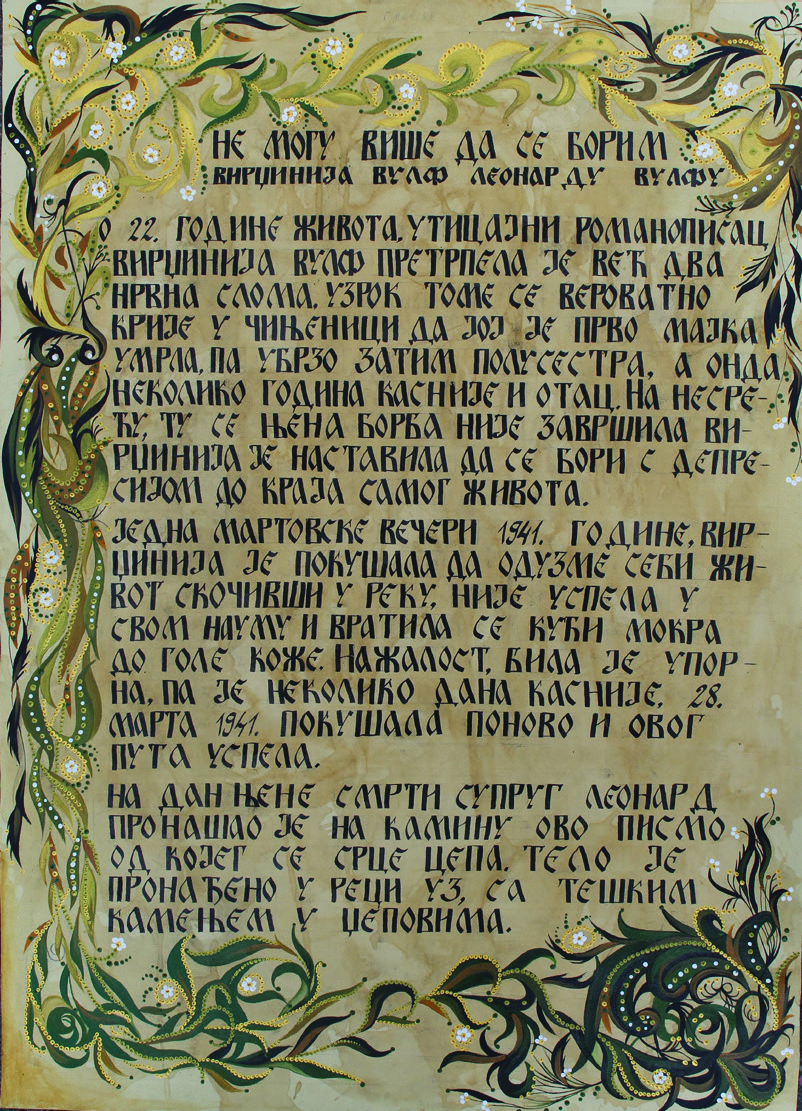 НЕ МОГУ ВИШЕ ДА СЕ БОРИМ
ВИРЏИНИЈА ВУЛФ ЛЕОНАРДУ ВУЛФУ
О 22. ГОДИНЕ ЖИВОТА, УТИЦАЈНИ РОМАНОПИСАЦ
ВИРЏИНИЈА ВУЛФ ПРЕТРПЕЛА ЈЕ ВЕЋ ДВА
НРВНА СЛОМА. УЗРОК ТОМЕ СЕ ВЕРОВАТНО
КРИЈЕ У ЧИЊЕНИЦИ ДА ЈОЈ ЈЕ ПРВО МАЈКА
УМРЛА, ПА УБРЗО ЗАТИМ ПОЛУСЕСТРА, А ОНДА
НЕКОЛИКО ГОДИНА КАСНИЈЕ И ОТАЦ. НА НЕСРЕ-
ЋУ, ТУ СЕ ЊЕНА БОРБА НИЈЕ ЗАВРШИЛА ВИ-
РЏИНИЈА ЈЕ НАСТАВИЛА ДА СЕ БОРИ С ДЕПРЕ-
СИЈОМ ДО КРАЈА САМОГ ЖИВОТА.
ЈЕДНА МАРТОВСКЕ ВЕЧЕРИ 1941. ГОДИНЕ, ВИР-
ЏИНИЈА ЈЕ ПОКУШАЛА ДА ОДУЗМЕ СЕБИ ЖИ-
ВОТ СКОЧИВШИ У РЕКУ, НИЈЕ УСПЕЛА У
СВОМ НАУМУ И ВРАТИЛА СЕ КУЋИ МОКРА
ДО ГОЛЕ КОЖЕ. НАЖАЛОСТ, БИЛА ЈЕ УПОР-
НА, ПА ЈЕ НЕКОЛИКО ДАНА КАСНИЈЕ, 28.
МАРТА 1941. ПОКУШАЛА ПОНОВО И ОВОГ
ПУТА УСПЕЛА.
НА ДАН ЊЕНЕ СМРТИ СУПРУГ ЛЕОНАРД
ПРОНАШАО ЈЕ НА КАМИНУ ОВО ПИСМО
ОД КОЈЕГ СЕ СРЦЕ ЦЕПА. ТЕЛО ЈЕ
ПРОНАЂЕНО У РЕЦИ УЗ, СА ТЕШКИМ
КАМЕЊЕМ У ЏЕПОВИМА.